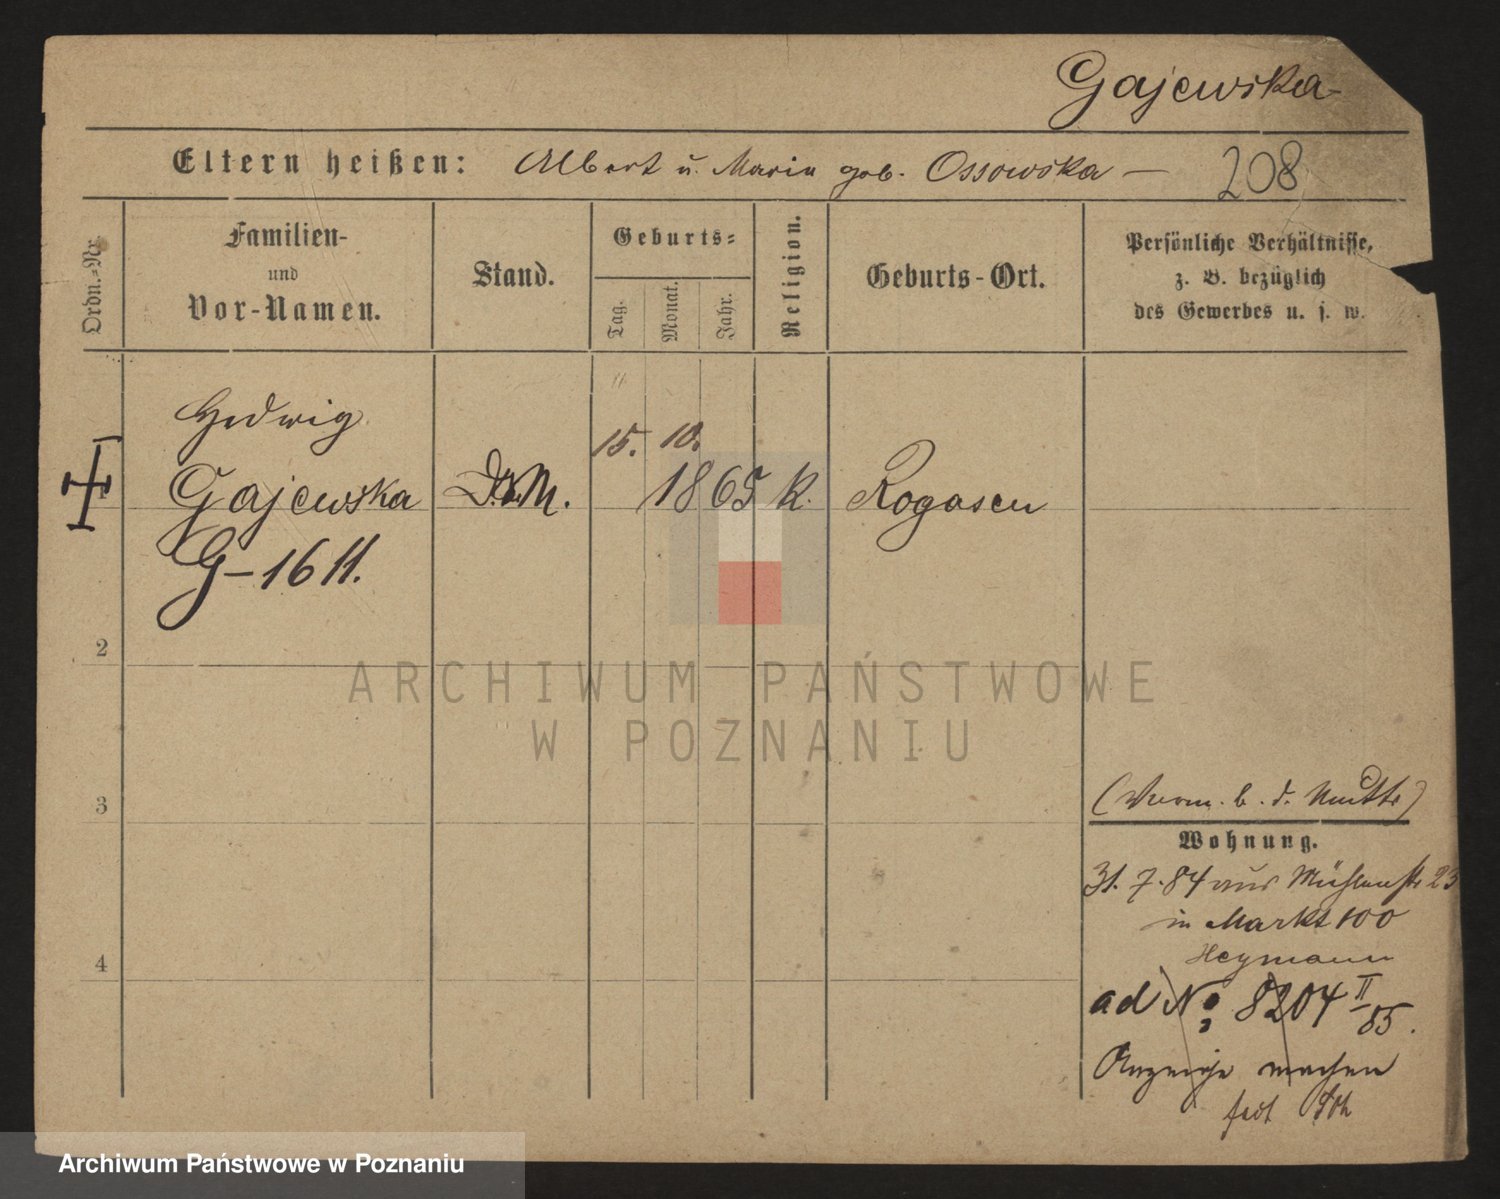 Gajewska
Eltern heißen: Albert u. Maria geb. Ossowska
208
Ordn.-Nr.
Familien-
und
Vor-Namen.
Stand.
Geburts-
Tag.
Monat.
Jahr.
Religion.
Geburts-Ort.
Persönliche Verhältnisse,
z. B. bezüglich
des Gewerbes u. s. w.
Hedwig
15. 10.
Gajewska
1865 k. Rogasen
G-1611.
2
3
4
b. d. Mutter)
Wohnung.
31. 7. 84 aus Mühlenstr 23
in Markt 100
Heymann
ad No: 8204 II/85.
Anzeige machen
ARCHIWUM PAŃSTWOWE
W POZNANIU
Archiwum Państwowe w Poznaniu